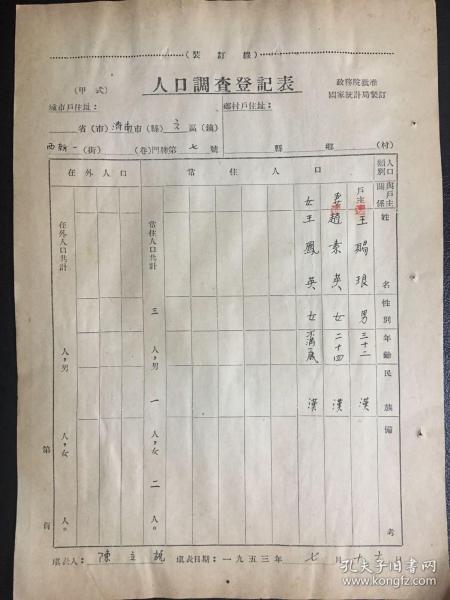 (裝訂線)
(甲式)
人口調查登記表
政務院批准
國家統計局製訂
城市戶住址:
鄉村戶住址:
省(市)濟南市(縣)三區(鎮)
西新一(街)(巷)門牌第七號
縣 鄉 (村)
人口類別 常住人口 在外人口
與戶主關係 戶主 妻 女
姓名 王 趙素英 王鳳英
性別 男 女 女
年齡 三十二 二十四 不滿歲
民族 漢 漢 漢
備考
常住人口共計 三人,男一人,女二人。
在外人口共計 人,男 人,女 人。
第 頁
填表人:陳立
填表日期:一九五三年七月十六日
孔夫子旧书网